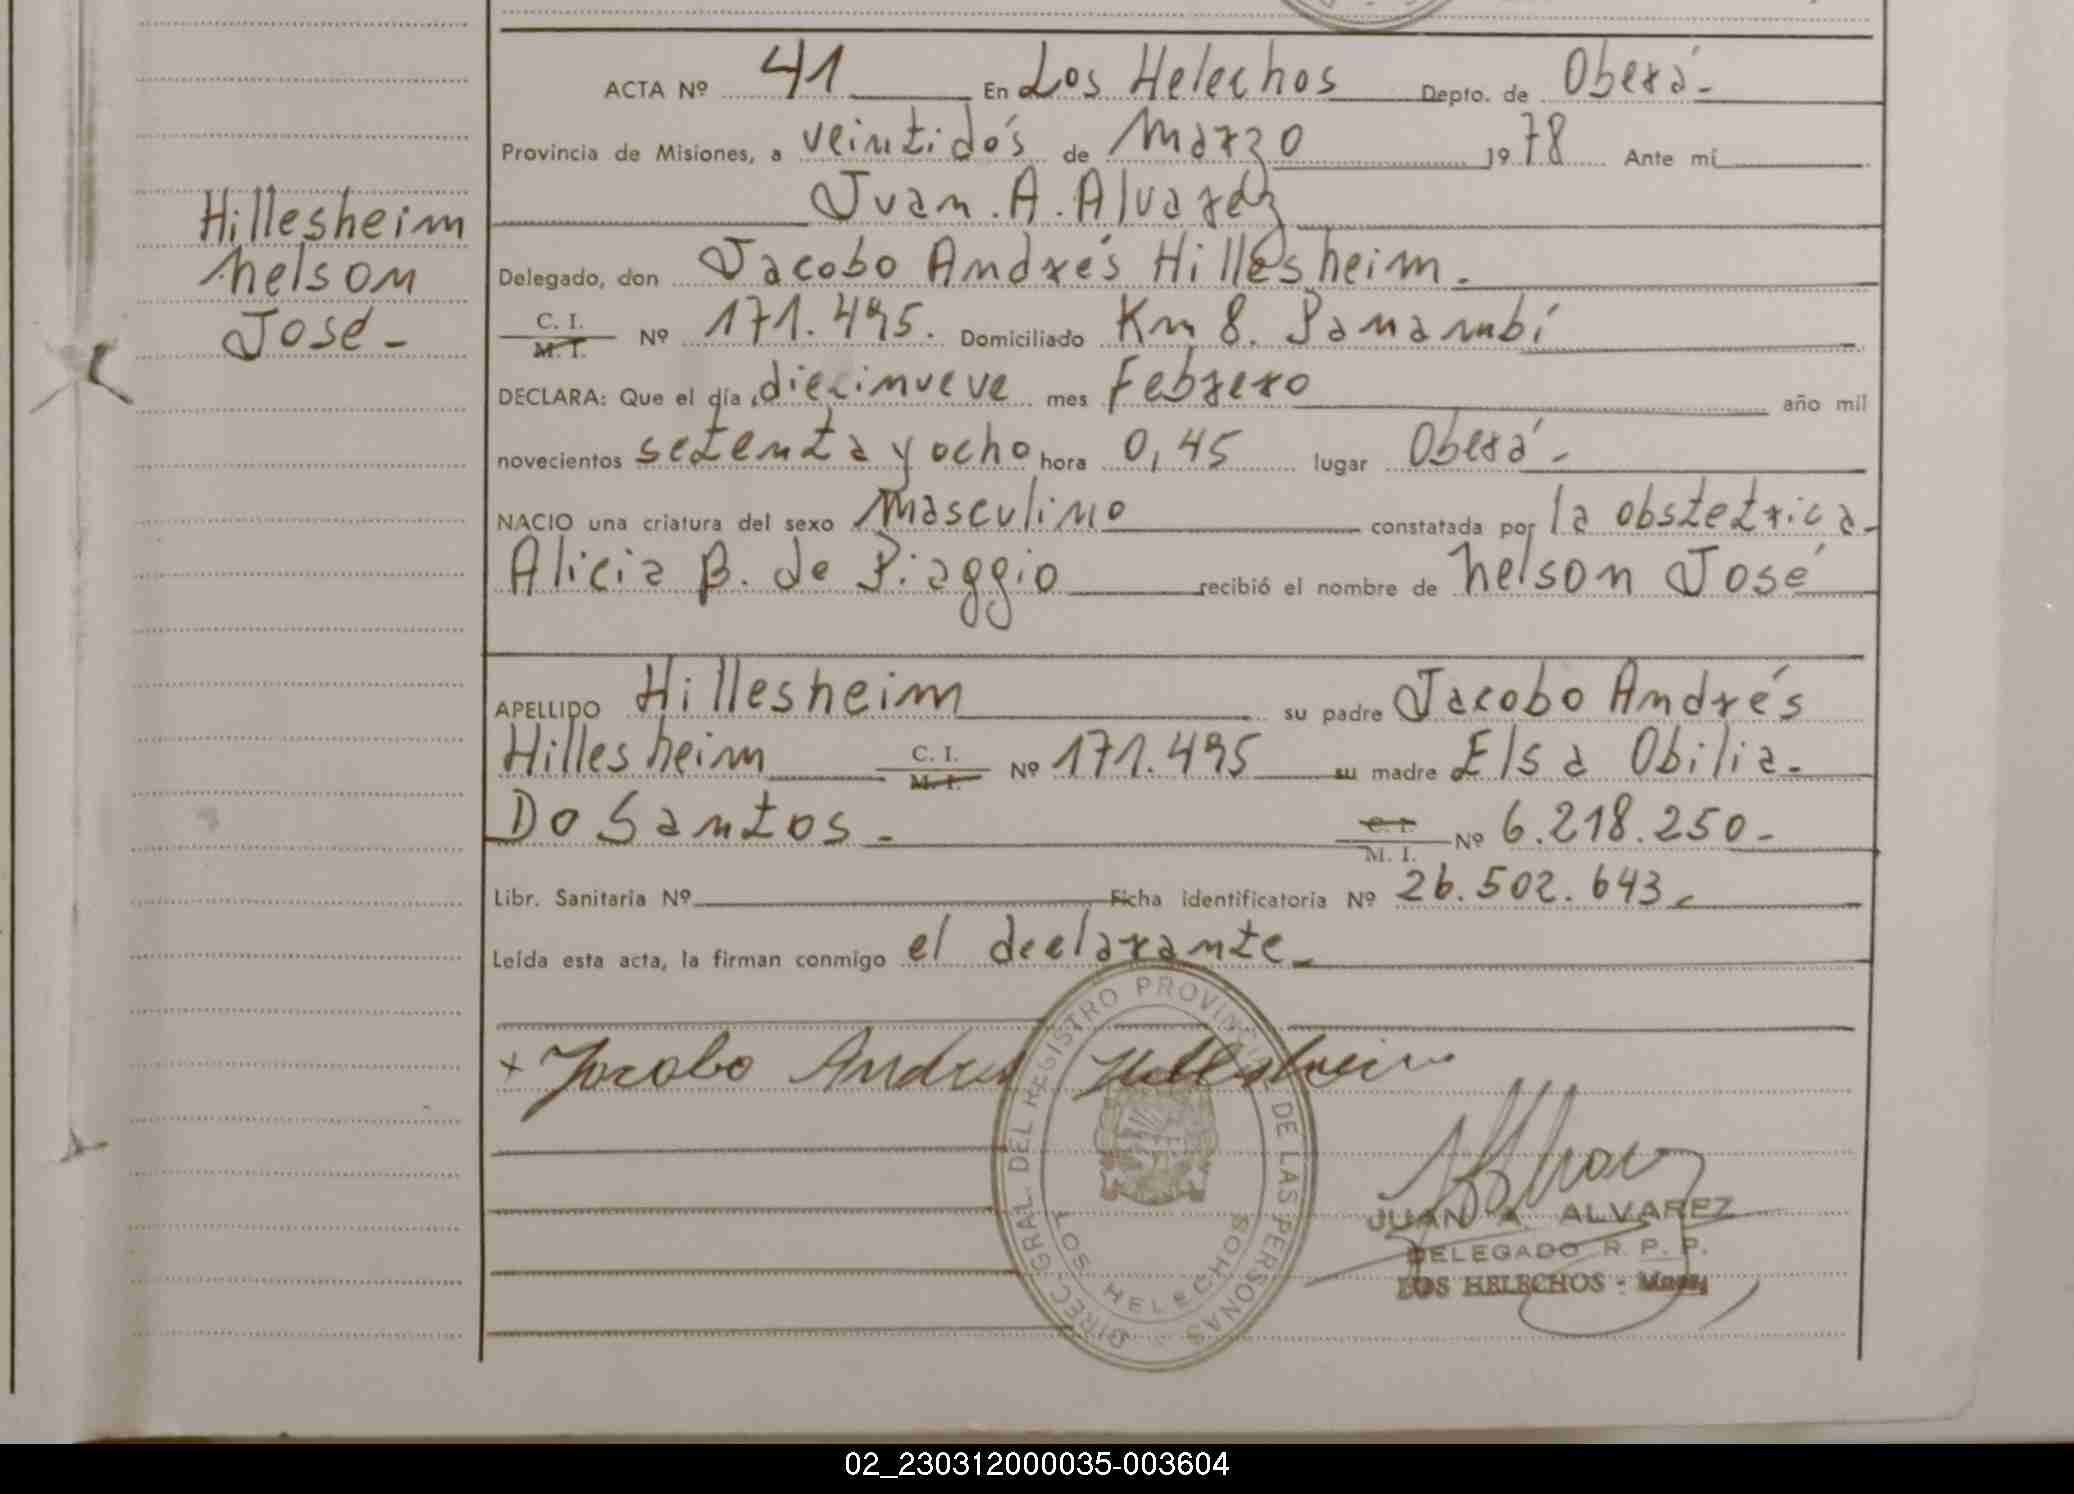 ACTA Nº 41 En Los Helechos Depto. de Oberá-
Provincia de Misiones, a veintidós de Marzo 1978 Ante mí
Juan. A. Alvarez
Delegado, don Jacobo Andrés Hillesheim.
C. I.
M. I. Nº 171.495. Domiciliado Km 8. Panambí
DECLARA: Que el día diecinueve mes Febrero año mil
novecientos setenta y ocho hora 0,45 lugar Oberá-
NACIO una criatura del sexo Masculino constatada por la obstetrica-
Alicia B. de Piaggio recibió el nombre de Nelson José
Hillesheim
Nelson
José-
APELLIDO Hillesheim su padre Jacobo Andrés
Hillesheim C. I. M. I. Nº 171.495 su madre Elsa Obilia-
Do Santos- C. I. M. I. Nº 6.218.250-
Libr. Sanitaria Nº Ficha identificatoria Nº 26.502.643-
Leída esta acta, la firman conmigo el declarante-
+ Jacobo Andres Hillesheim
DIREC. GRAL. DEL REGISTRO PROVINCIAL DE LAS PERSONAS
LOS HELECHOS
JUAN A. ALVAREZ
DELEGADO R. P. P.
LOS HELECHOS - Mnes.
02_230312000035-003604